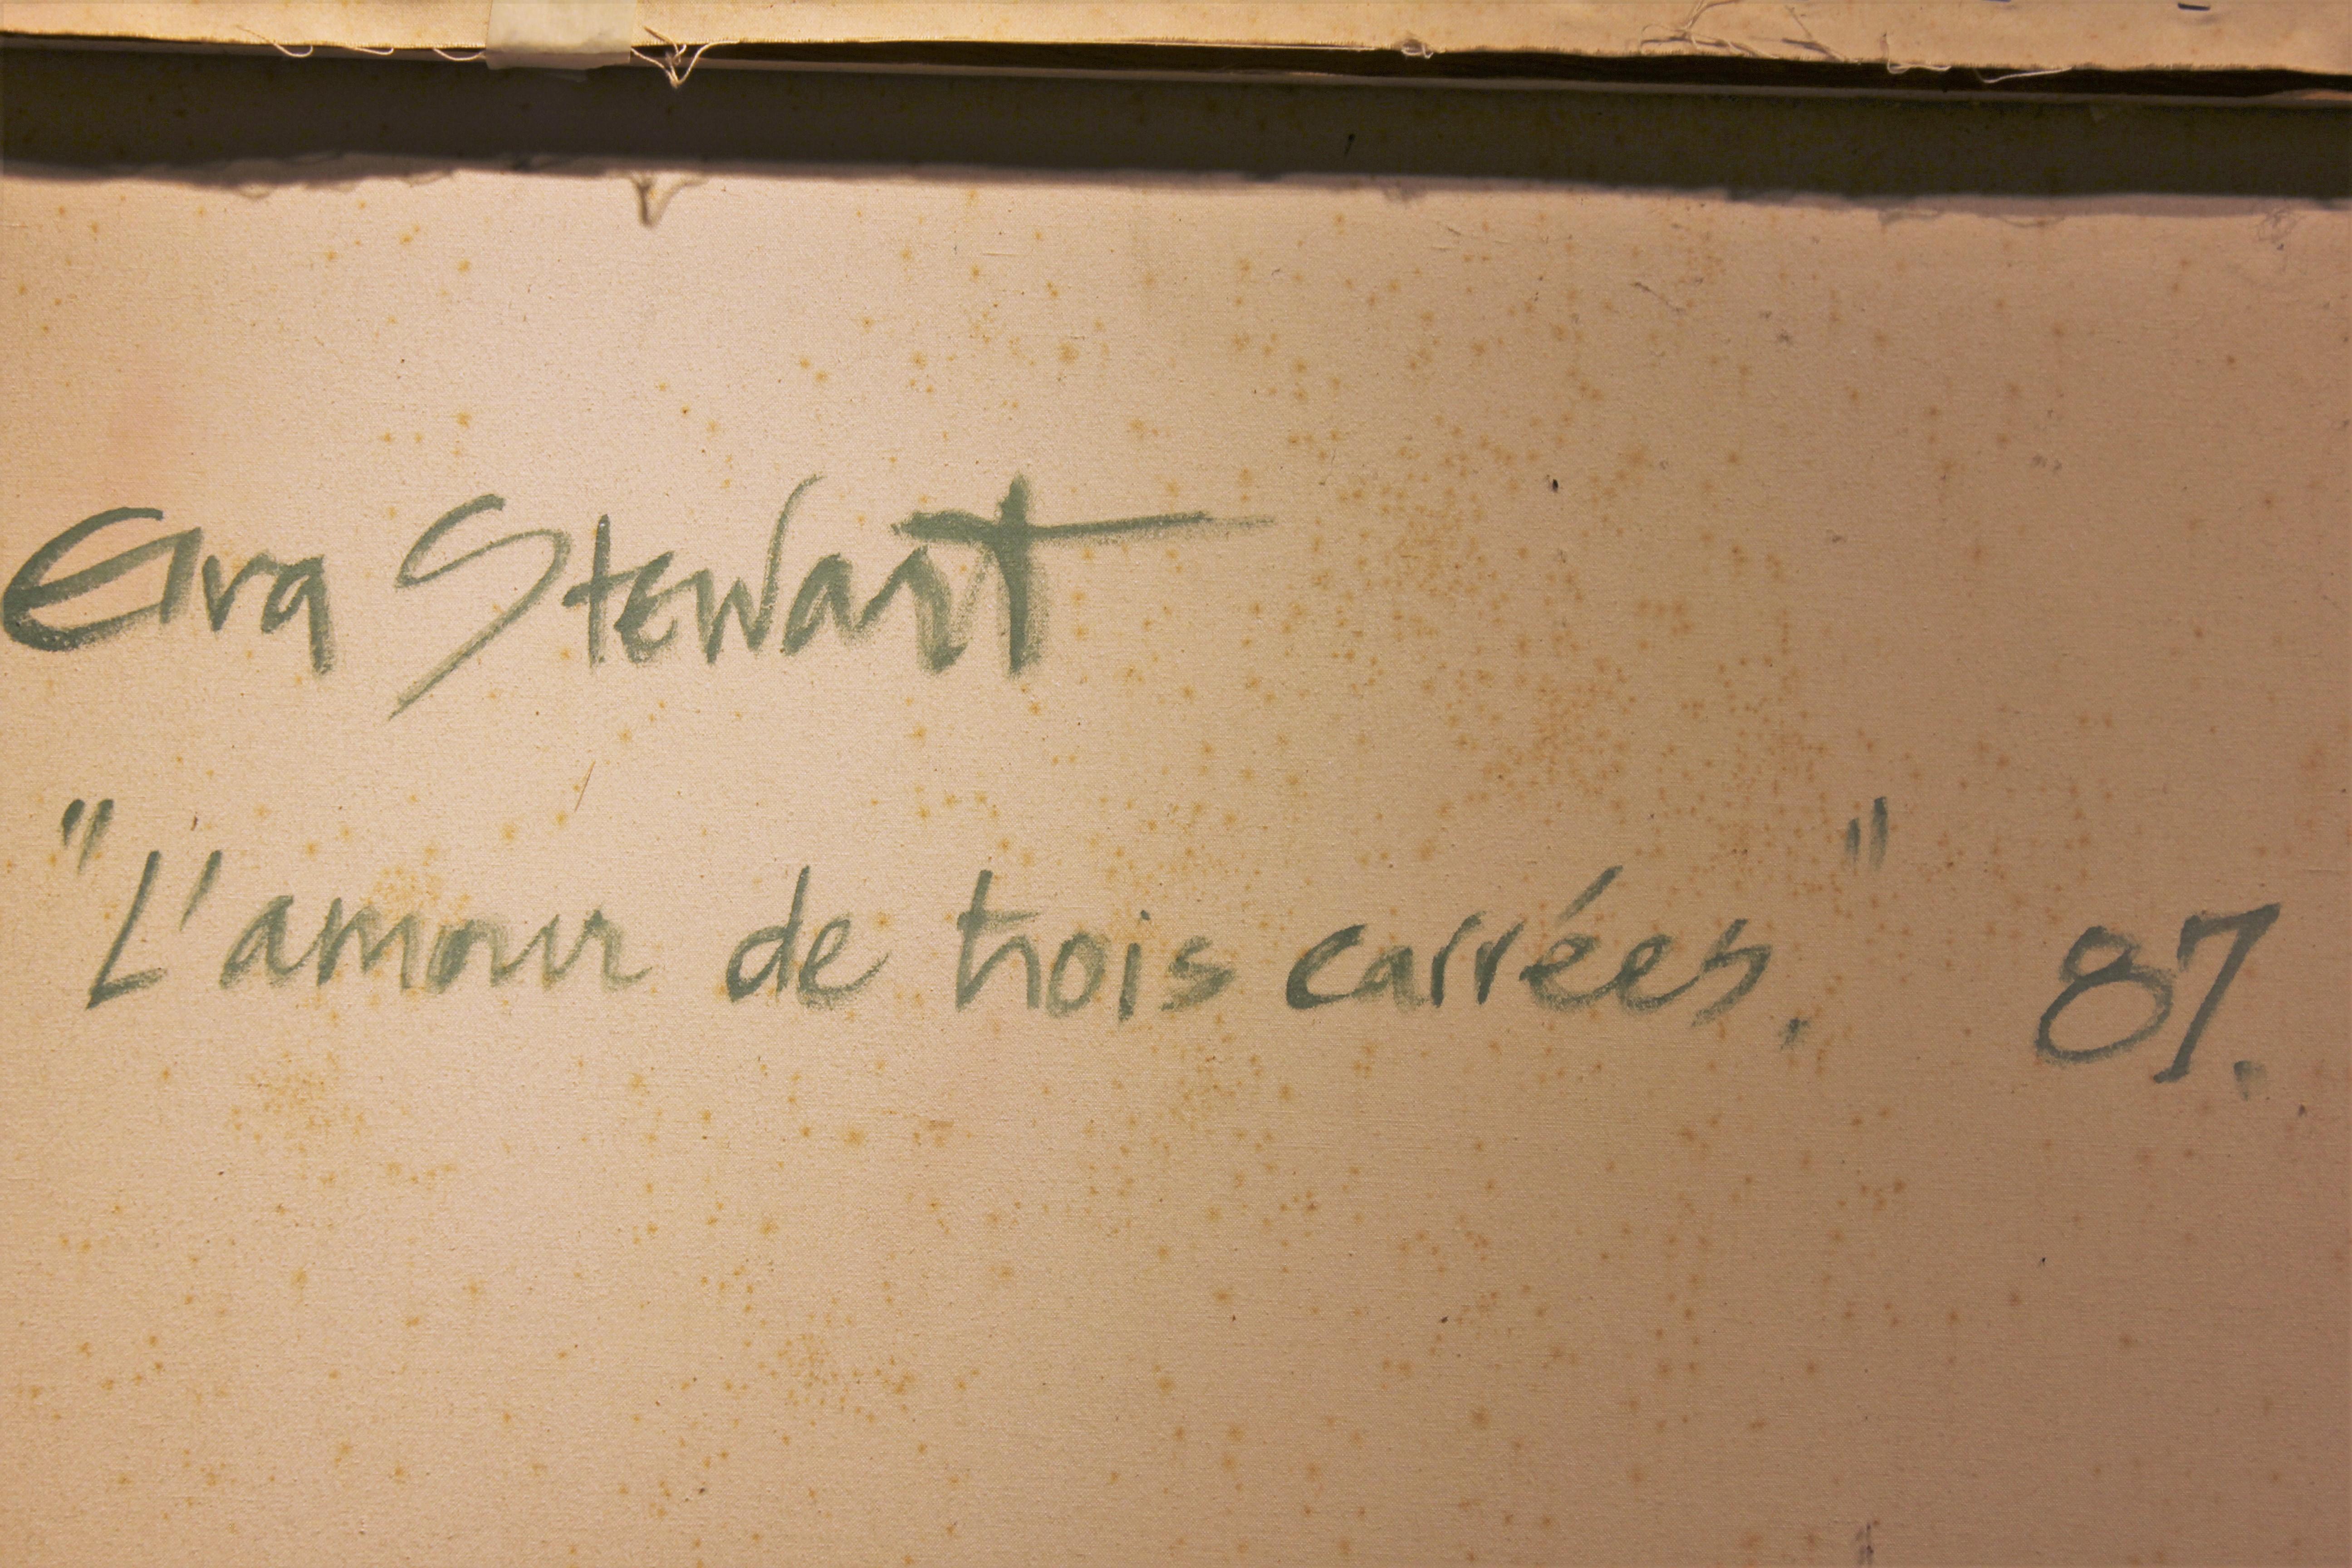 Elva Stewart
"L'amour de trois carrées." 87.